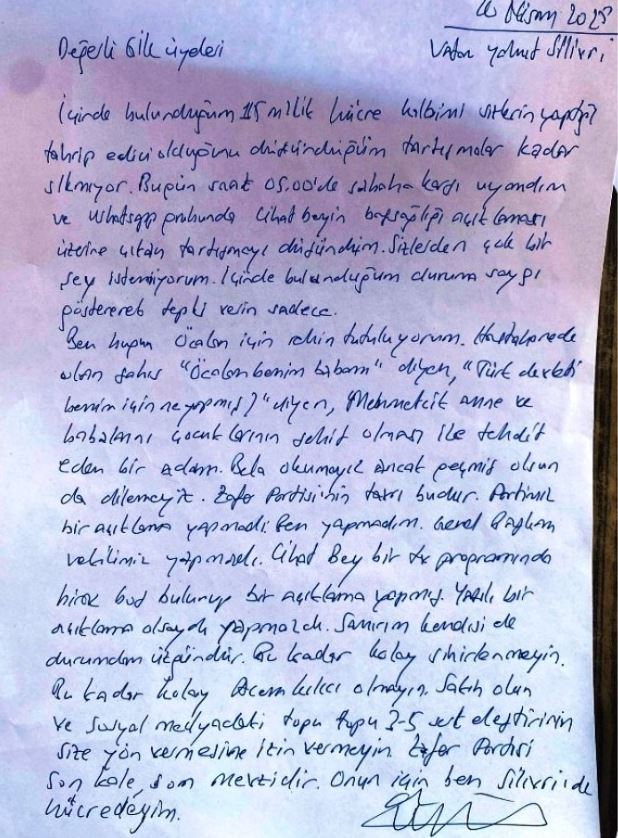 Nisan 2025
Değerli GİK üyeleri
Vatan yahut Silivri
İçinde bulunduğum 11.5 m2lik hücre kalbimi sizlerin yaptığı
tahrip edici olduğunu düşündüğüm tartışmalar kadar
sıkmıyor. Bugün saat 05.00'de sabaha karşı uyandım
ve Whatsapp grubunda Cihat beyin başsağlığı açıklaması
üzerine çıkan tartışmayı düşündüm. Sizlerden çok bir
şey istemiyorum. İçinde bulunduğum duruma saygı
göstererek tepki verin sadece.
Ben bugün Öcalan için rehin tutuluyorum. Hastahanede
olan şahıs "Öcalan benim babam" diyen, "Türk devleti
benim için ne yapmış?" diyen, Mehmetcik anne ve
babalarını çocuklarının şehit olması ile tehdit
eden bir adam. Bela okumayız ancak geçmiş olsun
da dilemeyiz. Zafer Partisinin tavrı budur. Partimiz
bir açıklama yapmadı. Ben yapmadım. Genel Başkan
vekilimiz yapmadı. Cihat Bey bir tv programında
biraz boş bulunup bir açıklama yapmış. Yazılı bir
açıklama olsaydı yapmazdı. Sanırım kendisi de
durumdan üzgündür. Bu kadar kolay sinirlenmeyin.
Bu kadar kolay Acem kılıcı olmayın. Sakin olun
ve sosyal medyadaki topu topu 3-5 sert eleştirinin
size yön vermesine izin vermeyin. Zafer Partisi
son kale, son mevzidir. Onun için ben Silivri'de
hücredeyim.